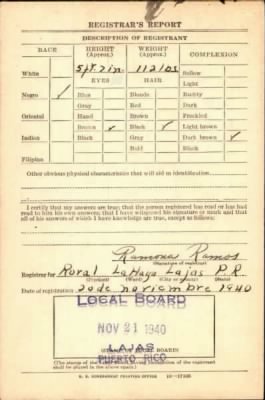 REGISTRAR'S REPORT
DESCRIPTION OF REGISTRANT
RACE HEIGHT (Approx.) WEIGHT (Approx.) COMPLEXION
White 5 ft. 7 in. 112 lbs Sallow
EYES HAIR Light
Negro ✓ Blue Blonde Ruddy
Gray Red Dark
Oriental Hazel Brown Freckled
Brown ✓ Black ✓ Light brown
Indian Black Gray Dark brown ✓
Bald Black
Filipino
Other obvious physical characteristics that will aid in identification
I certify that my answers are true; that the person registered has read or has
had read to him his own answers; that I have witnessed his signature or mark and that
all of his answers of which I have knowledge are true, except as follows:
Ramonas Ramos
(Signature of registrar)
Registrar for Rural La Haya Lajas P.R.
(Precinct) (Ward) (City or county) (State)
Date of registration 20 de noviembre 1940
LOCAL BOARD
NOV 21 1940
LAJAS
PUERTO RICO
(The stamp of the
shall be placed in the space above.)
U. S. GOVERNMENT PRINTING OFFICE